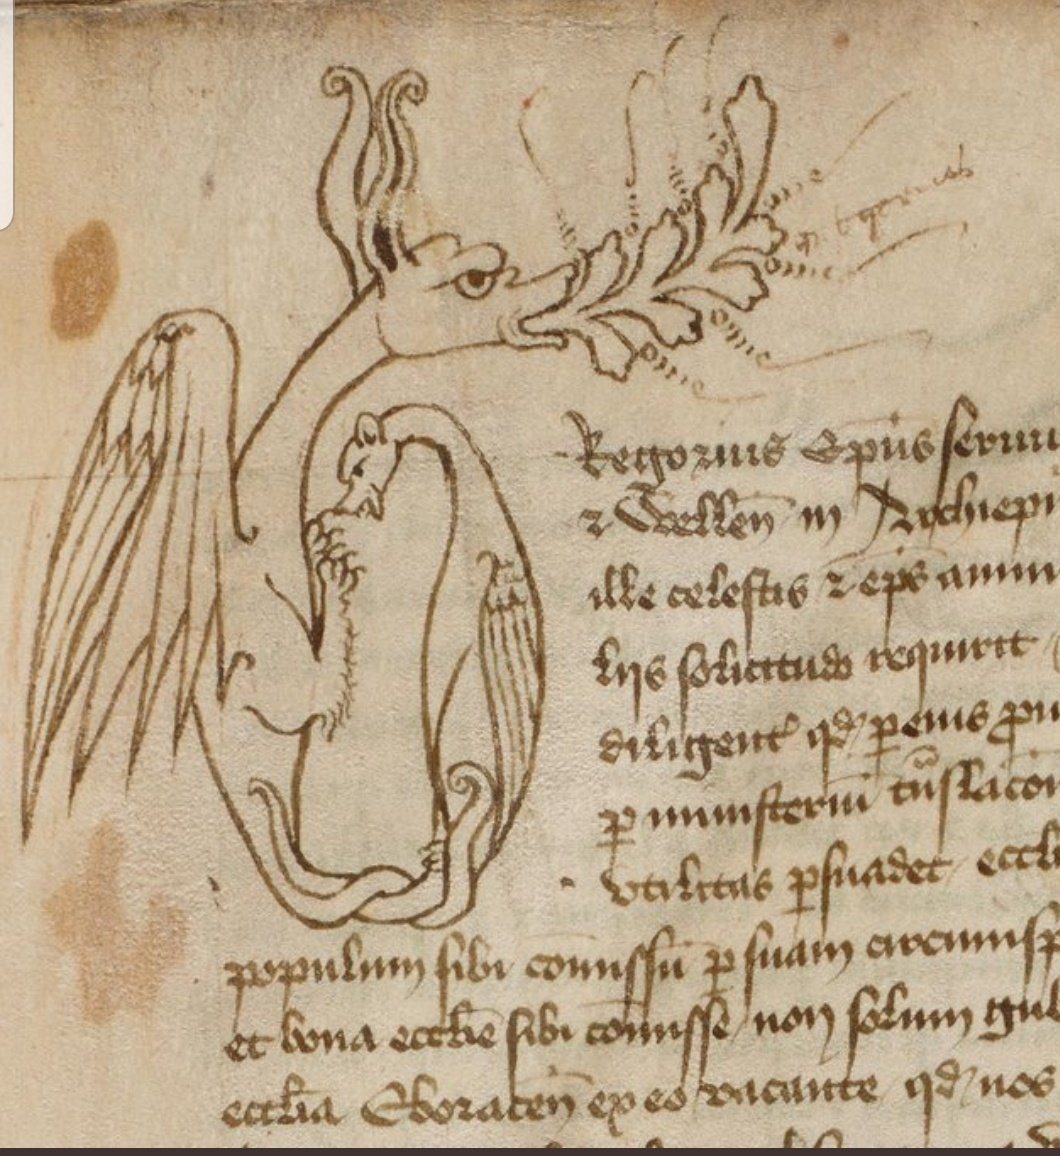 Regorius Ep̄us seruu
⁊ Wellen̄ in Archiepi
ille celestis ⁊ ep̄s anim
liis solicitudo requirit
diligent̄ qd̄ ꝑ eius
ꝑ ministeriū trāslacōn
vtilitas ꝑsuadet eccl
populum sibi com̄issū ꝑ suam circumsp
et bona eccl̄ie sibi com̄isse non solum gub
eccl̄ia Eboracen̄ ex eo vacante qd̄ nos